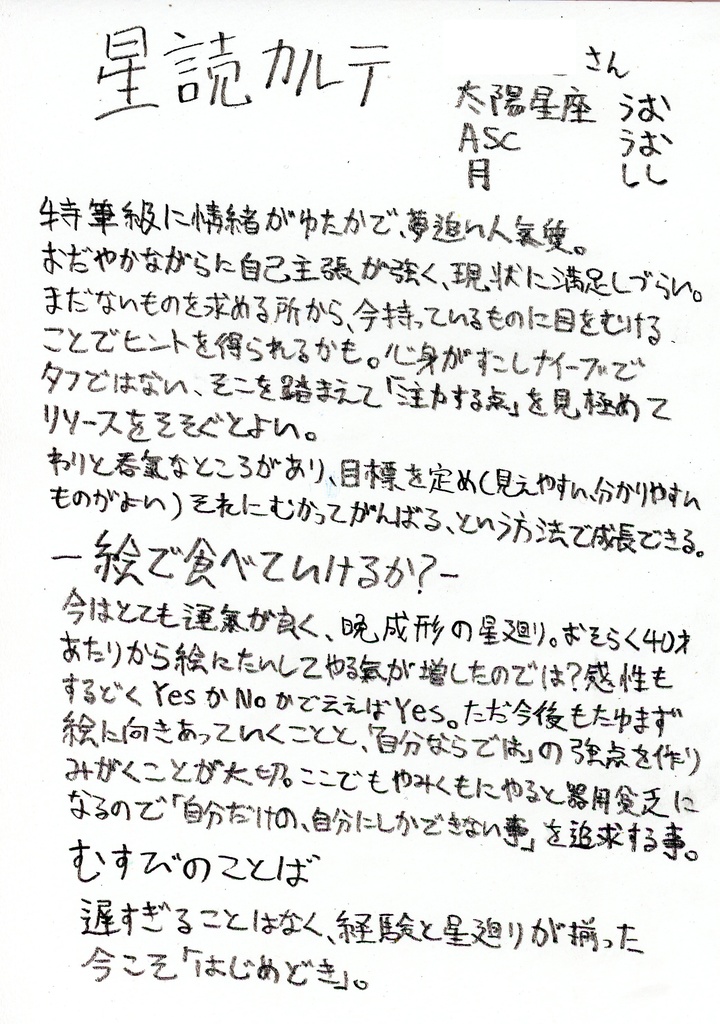 星読カルテ
さん
太陽星座 うお
ASC うお
月 しし
特筆級に情緒がゆたかで、夢追い人氣質。
おだやかながらに自己主張が強く、現状に満足しづらい。
まだないものを求める所から、今持っているものに目をむける
ことでヒントを得られるかも。心身がすこしナイーブで
タフではない、そこを踏まえて「注力する点」を見極めて
リソースをそそぐとよい。
わりと呑氣なところがあり、目標を定め(見えやすい、分かりやすい
ものがよい)それにむかってがんばる、という方法で成長できる。
ー絵で食べていけるか?ー
今はとても運氣が良く、晩成形の星廻り。おそらく40才
あたりから絵にたいしてやる氣が増したのでは?感性も
するどくYesかNoかで云えばYes。ただ今後もたゆまず
絵に向きあっていくことと、「自分ならでは」の強点を作り
みがくことが大切。ここでもやみくもにやると器用貧乏に
なるので「自分だけの、自分にしかできない事」を追求する事。
むすびのことば
遅すぎることはなく、経験と星廻りが揃った
今こそ「はじめどき」。